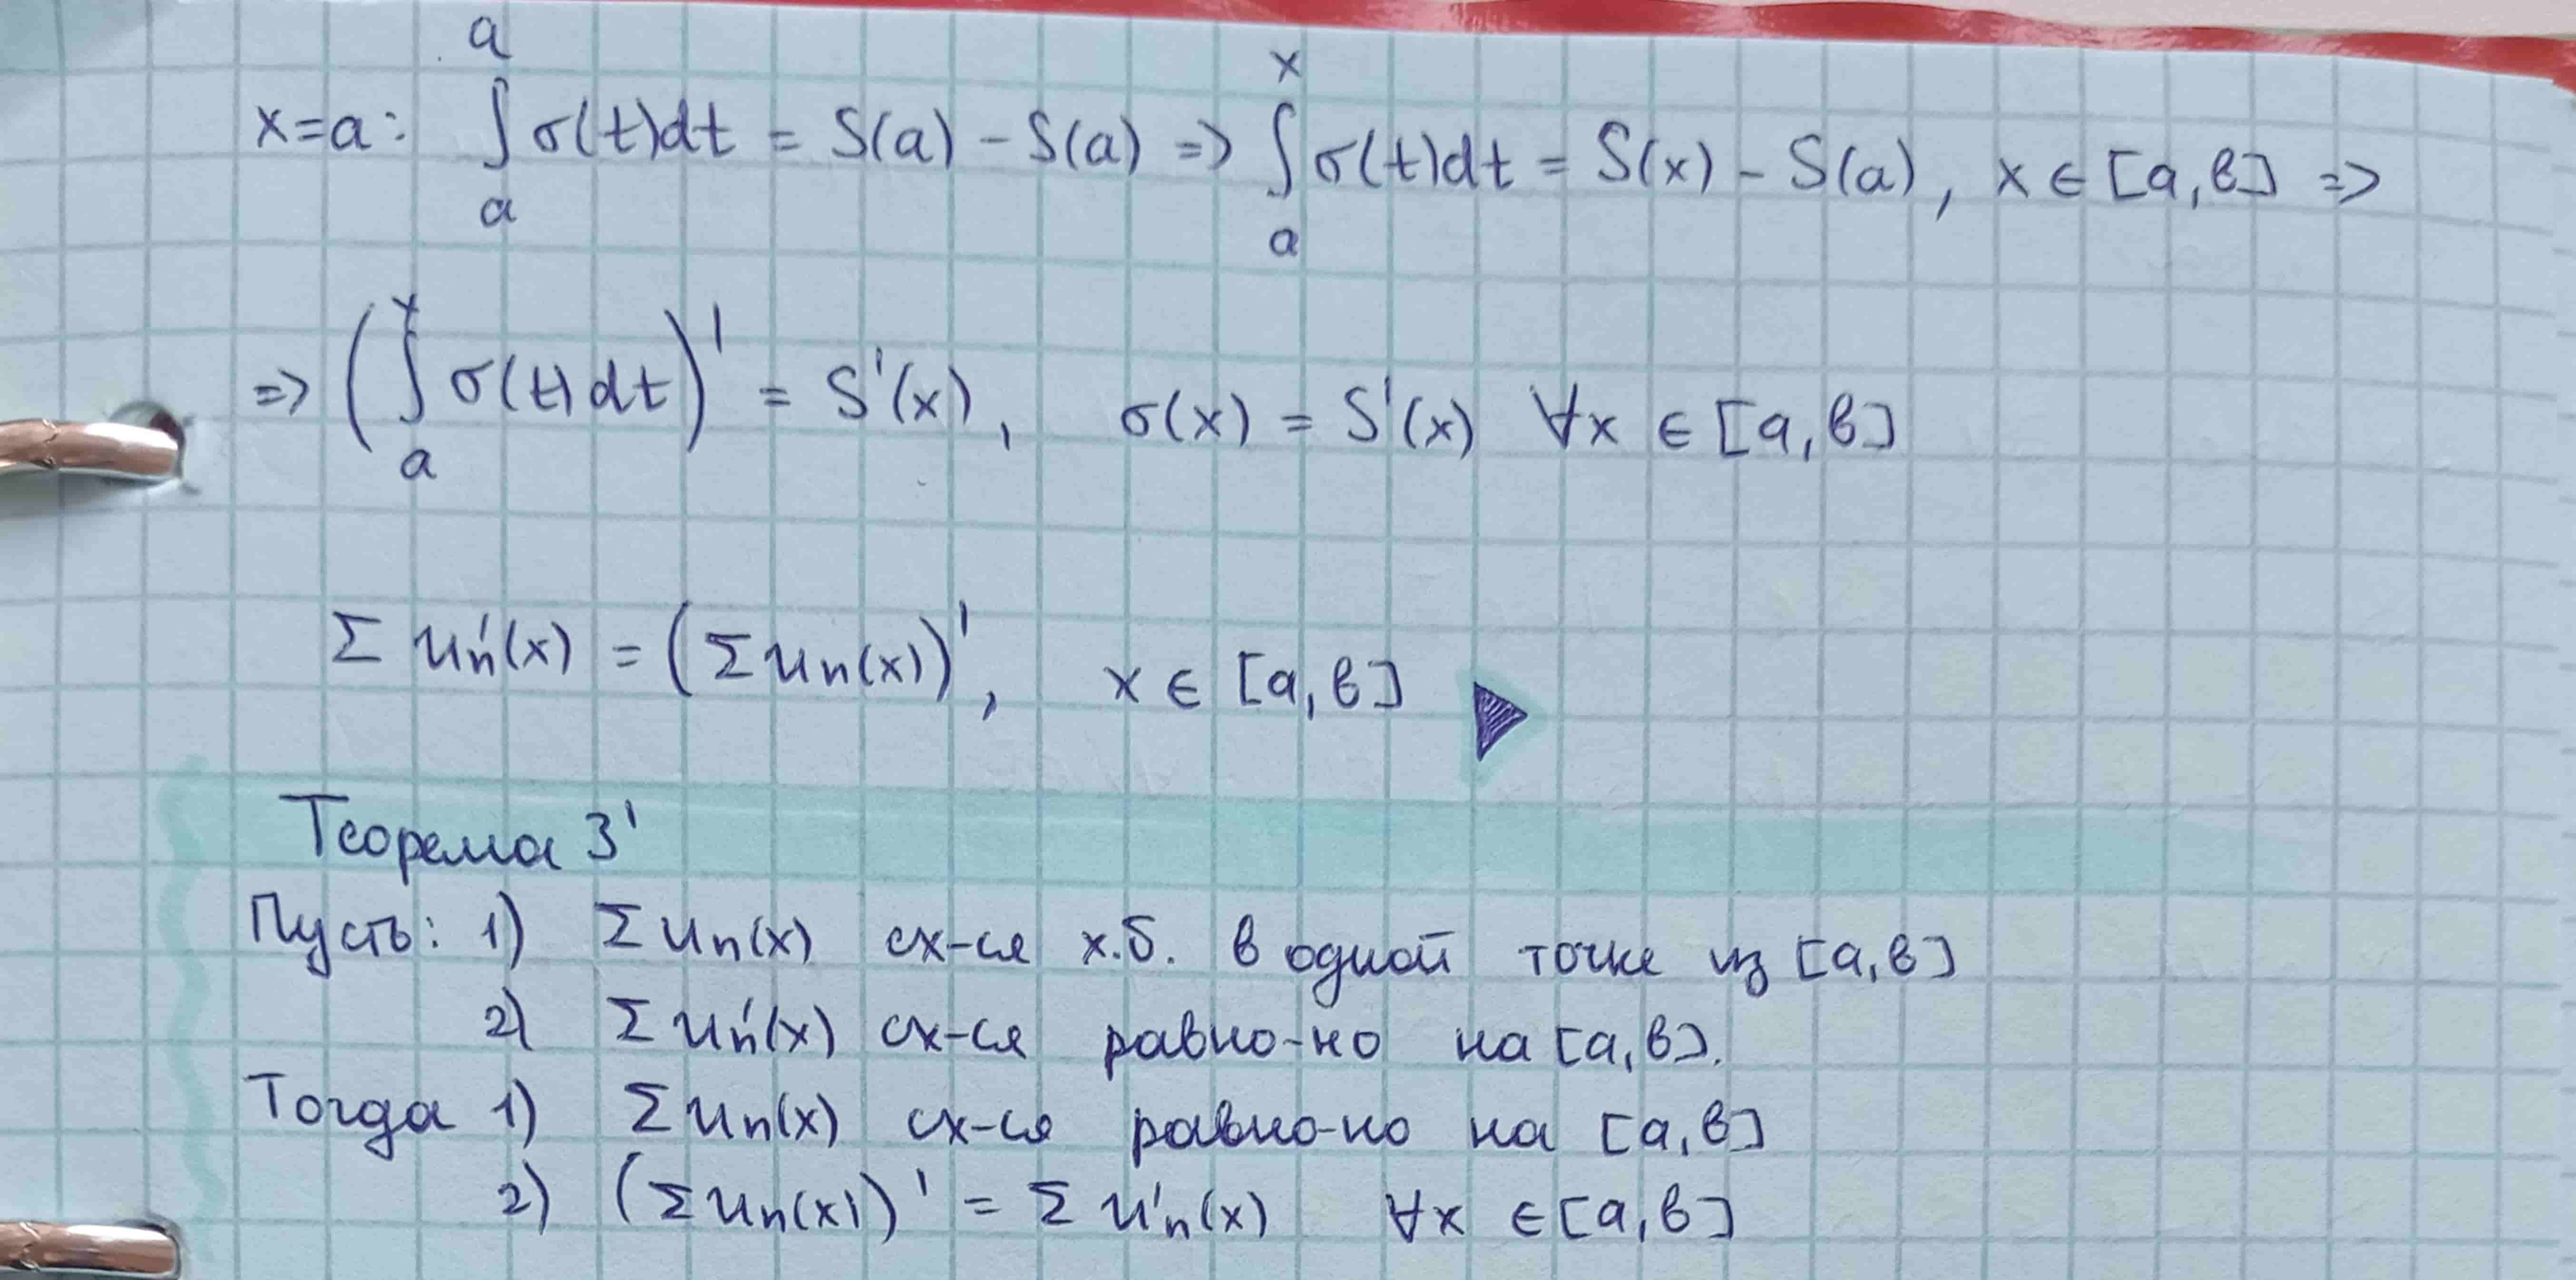 x=a: ∫ₐᵃ σ(t)dt = S(a) - S(a) => ∫ₐˣ σ(t)dt = S(x) - S(a), x ∈ [a,в] =>
=> (∫ₐˣ σ(t)dt)' = S'(x), σ(x) = S'(x) ∀x ∈ [a,в]
Σ uₙ'(x) = (Σ uₙ(x))', x ∈ [a,в]
Теорема 3'
Пусть: 1) Σ uₙ(x) сх-ся х.б. в одной точке из [a,в]
2) Σ uₙ'(x) сх-ся равно-но на [a,в].
Тогда 1) Σ uₙ(x) сх-ся равно-но на [a,в]
2) (Σ uₙ(x))' = Σ u'ₙ(x) ∀x ∈ [a,в]